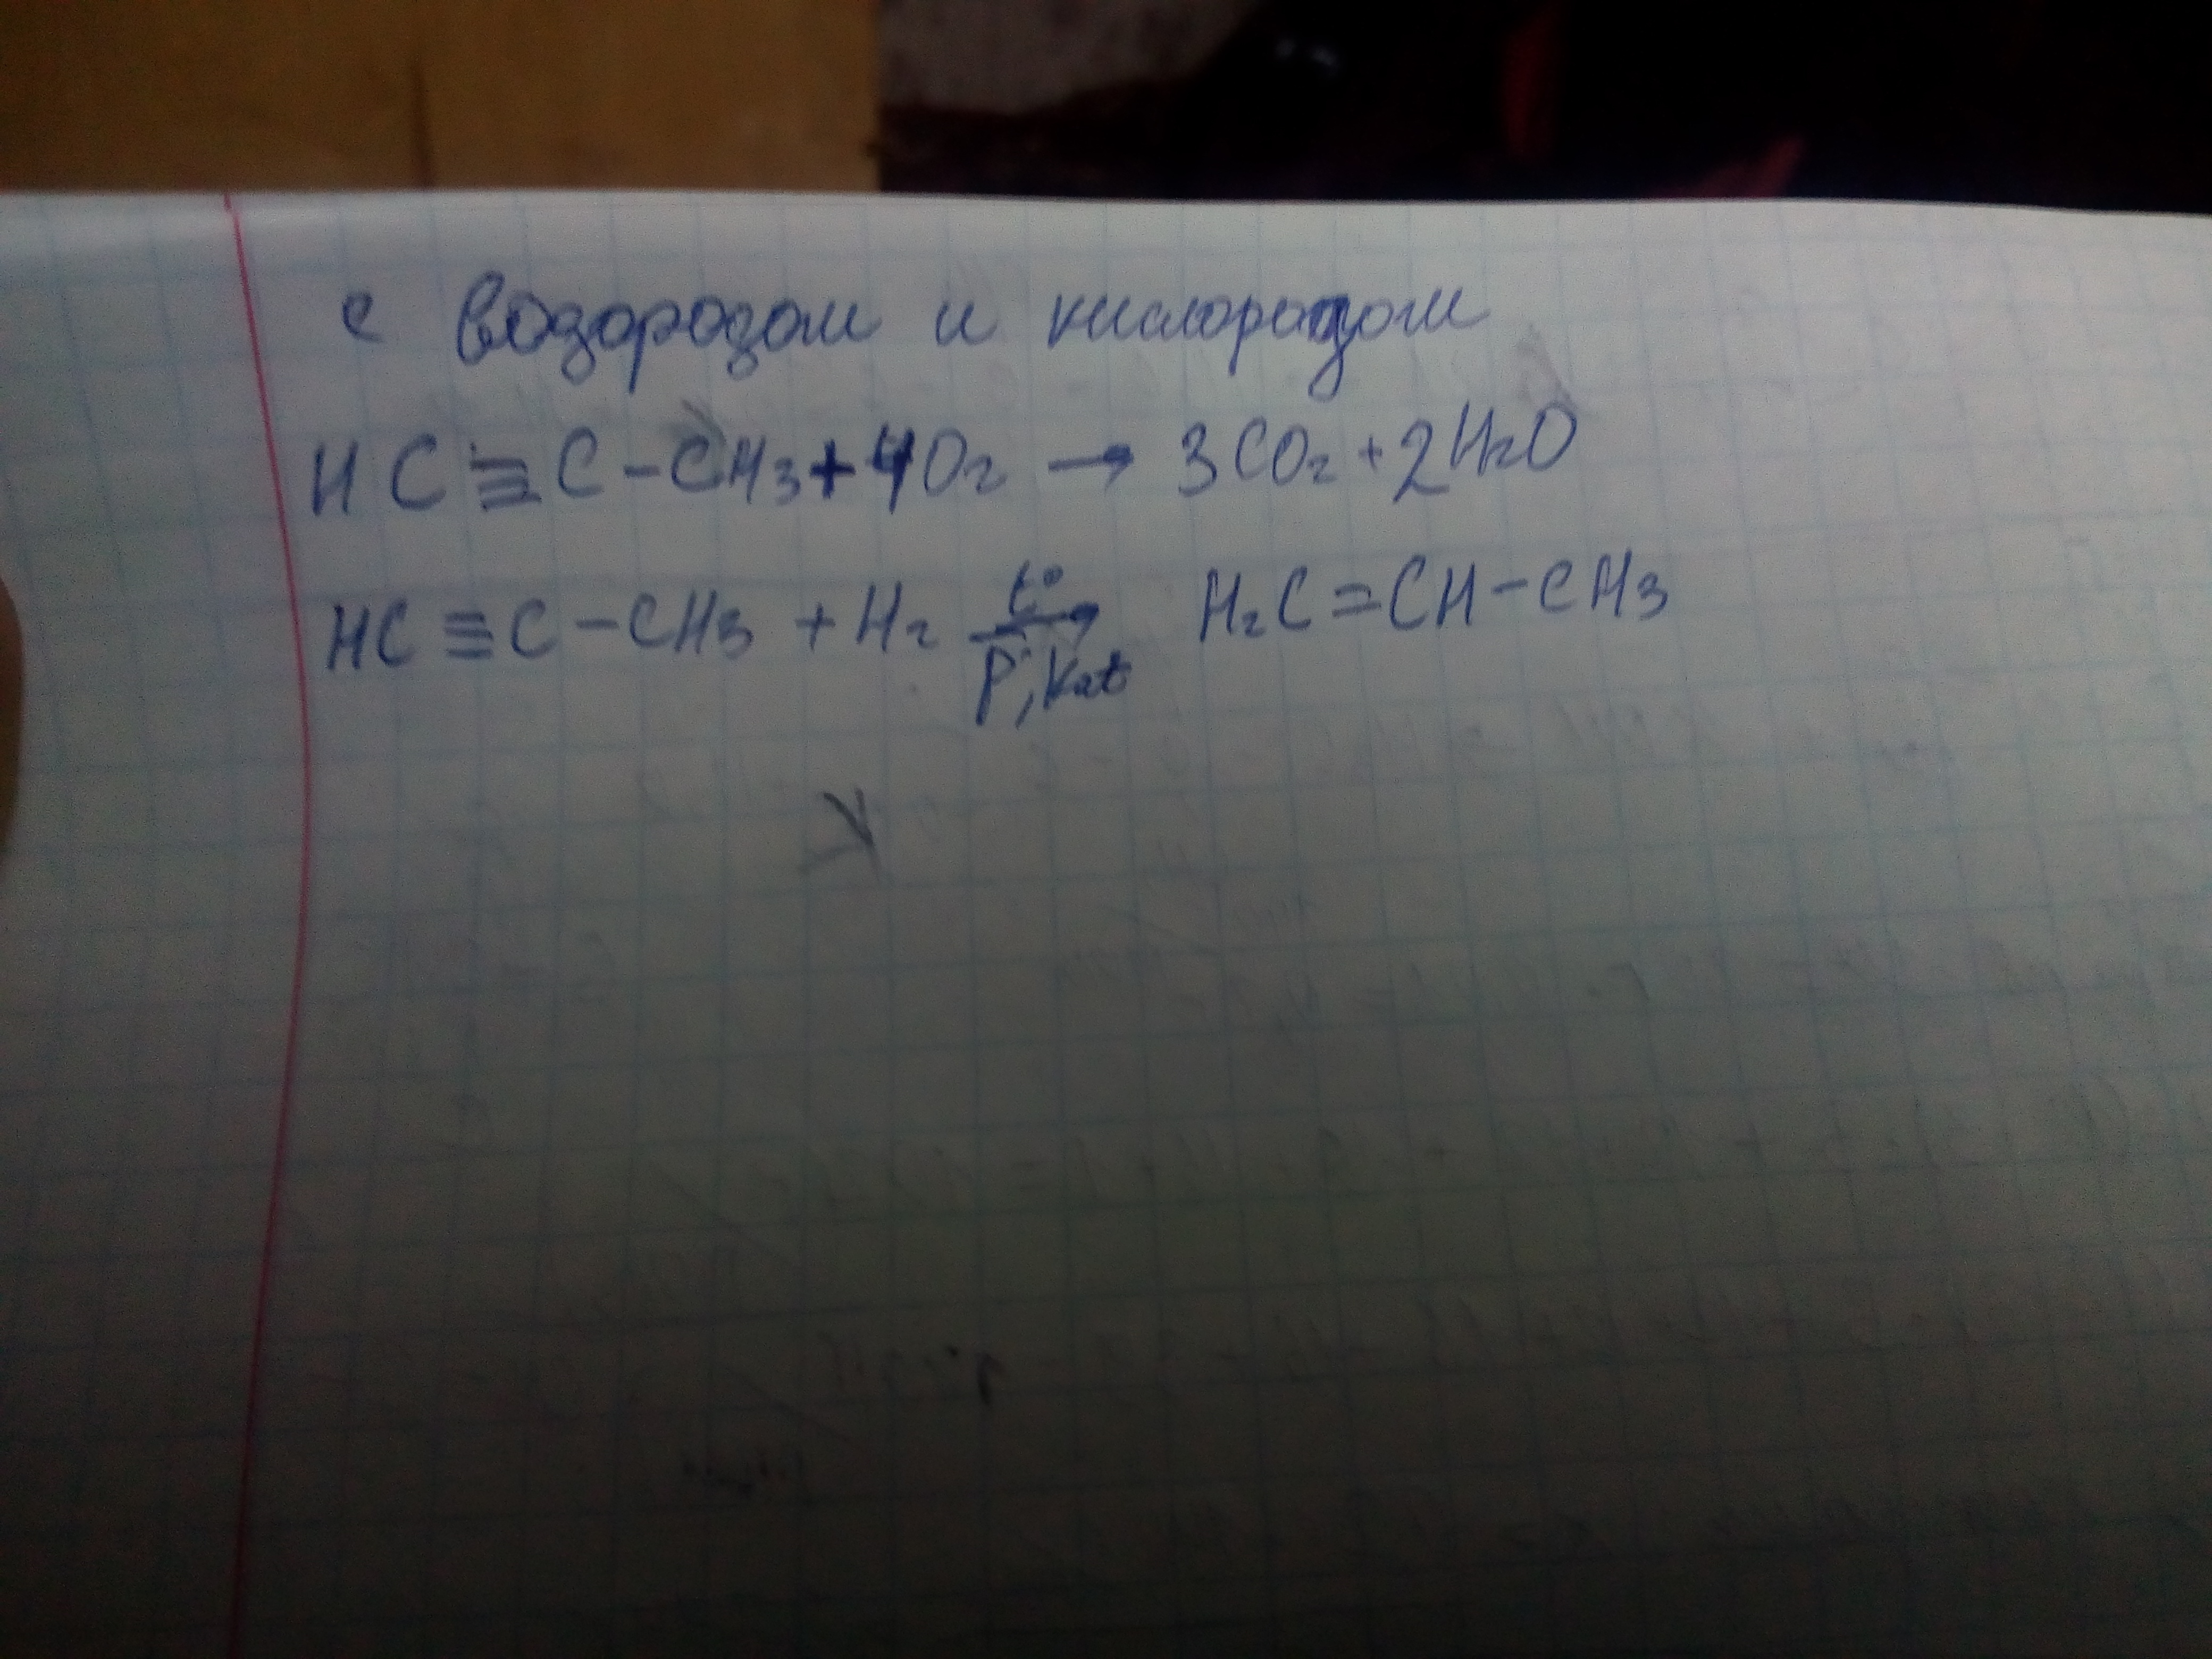 с водородом и кислородом
HC≡C-CH3+4O2 → 3CO2+2H2O
HC≡C-CH3 + H2 t° → P, kat H2C=CH-CH3